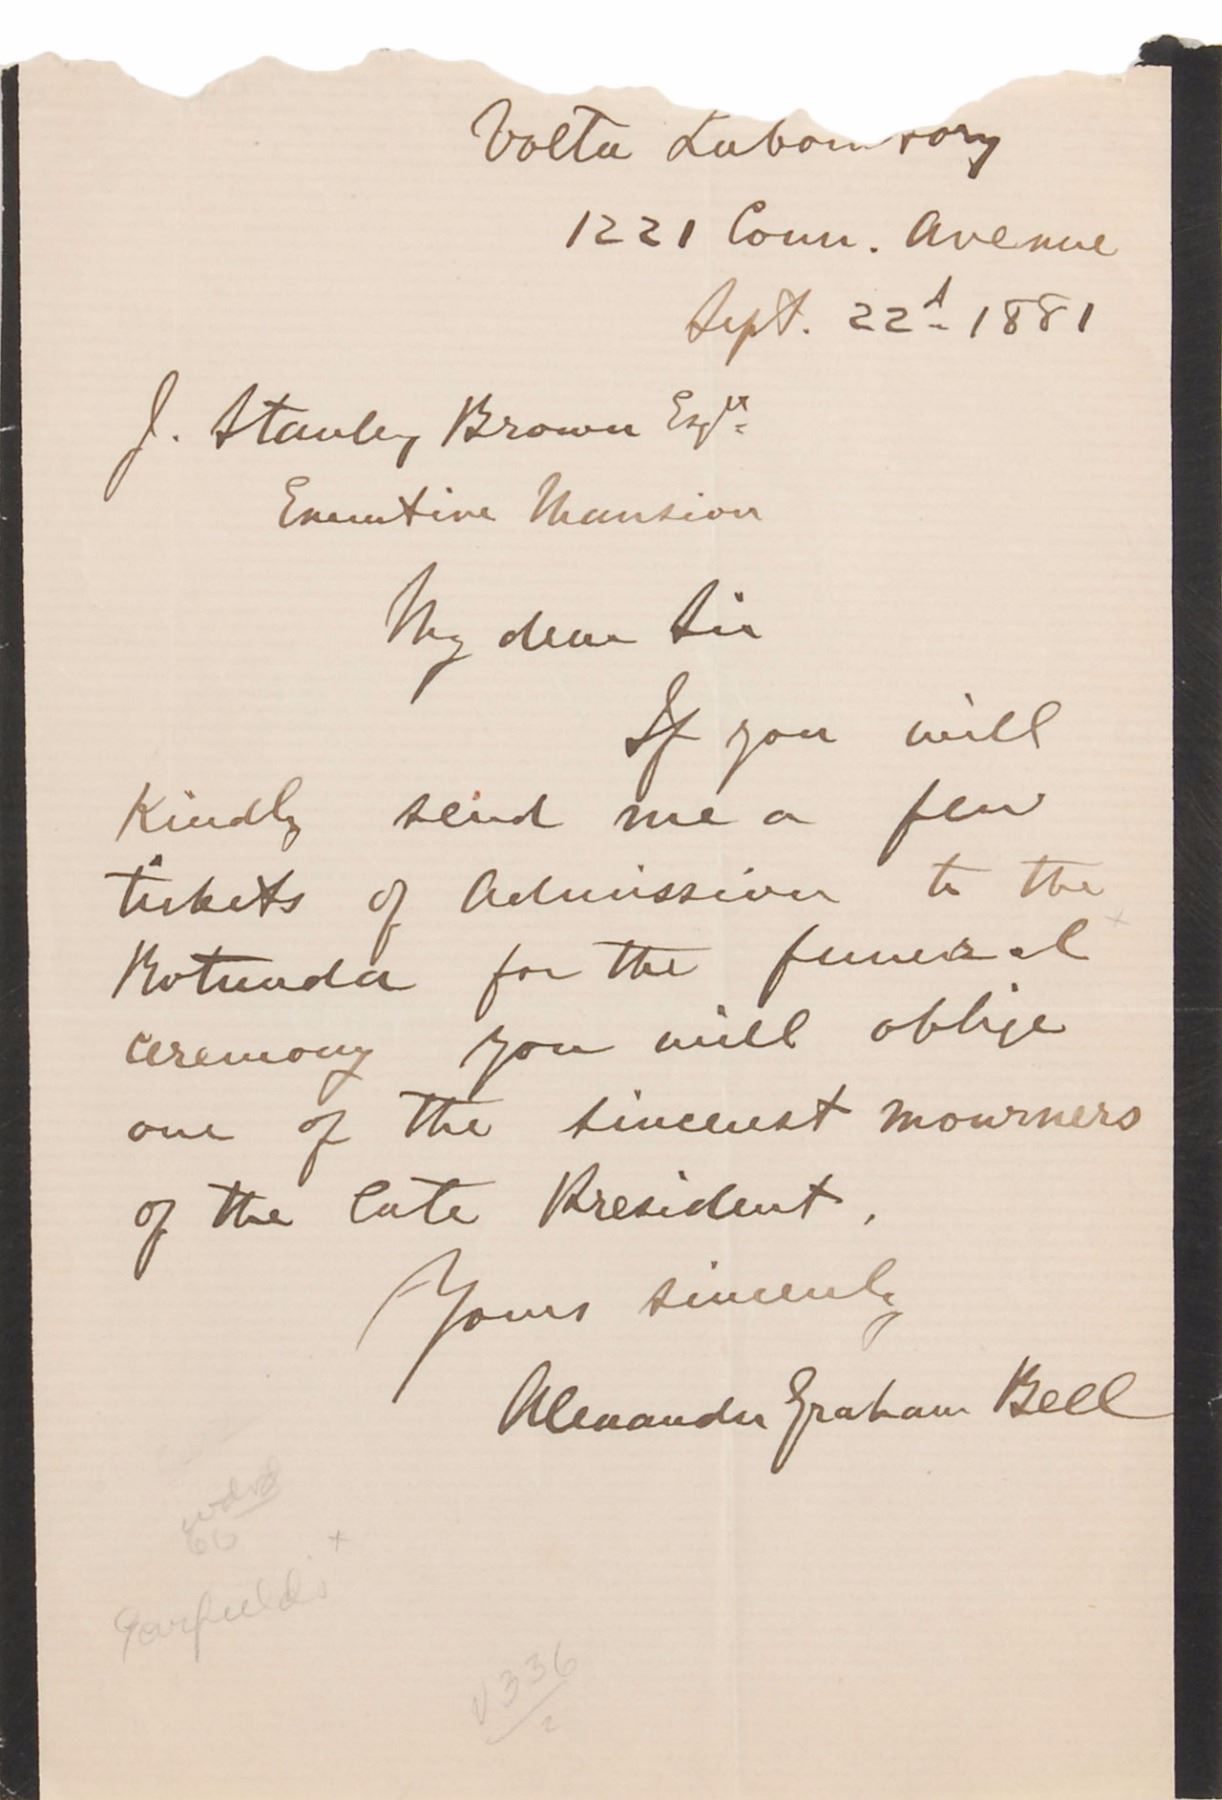 Volta Laboratory
1221 Conn. Avenue
Sept. 22d 1881
J. Stanley Brown Esqre
Executive Mansion
My dear Sir
If you will
Kindly send me a few
tickets of admission to the
Rotunda for the funeral
ceremony you will oblige
one of the sincerest mourners
of the late President.
Yours sincerely
Alexander Graham Bell
60
Garfield's
V336
2